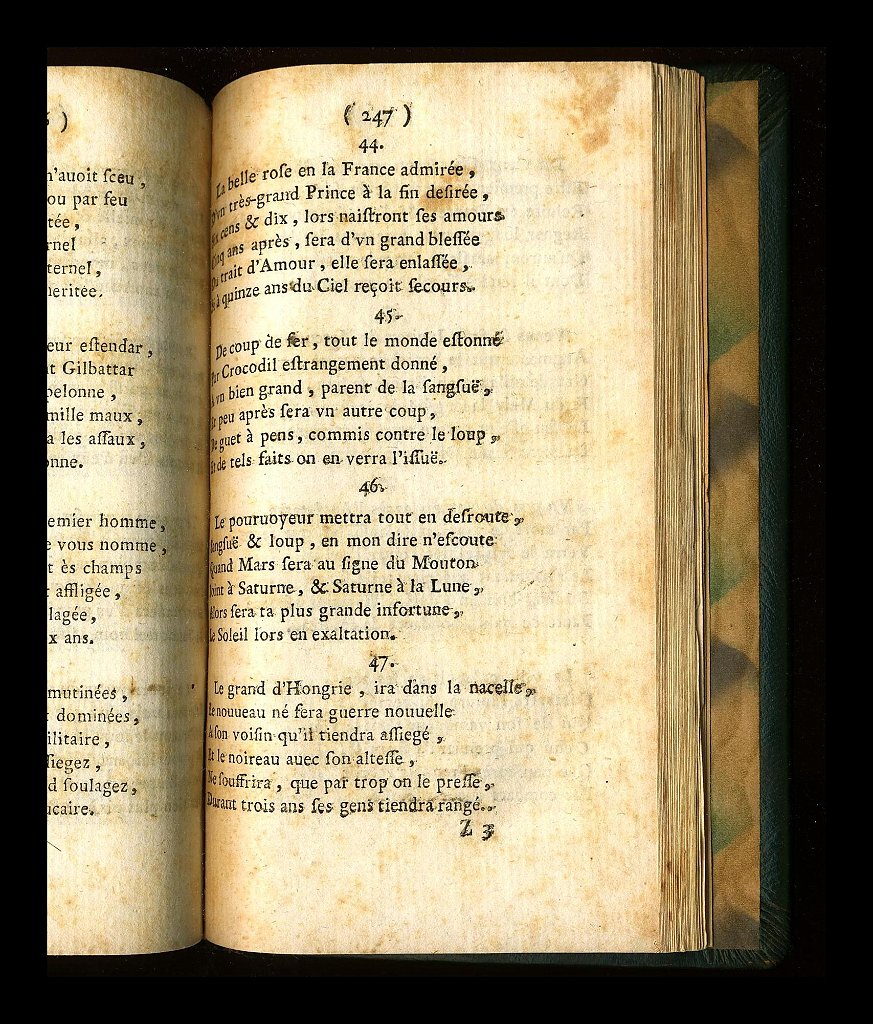 )
n'auoit ſceu,
ou par feu
tée,
rnel
ternel,
eritée.
eur eſtendar,
t Gilbattar
belonne,
mille maux,
a les aſſaux,
onne.
emier homme,
e vous nomme,
t ès champs
affligée,
lagée,
x ans.
mutinées,
dominées,
ilitaire,
ſiegez,
d ſoulagez,
caire.
(247)
44.
La belle roſe en la France admirée,
D'vn très-grand Prince à la fin deſirée,
Six cens & dix, lors naiſtront ſes amours
Cinq ans après, ſera d'vn grand bleſſée
Du trait d'Amour, elle ſera enlaſſée,
à quinze ans du Ciel reçoit ſecours.
45.
De coup de fer, tout le monde eſtonné
Par Crocodil eſtrangement donné,
A vn bien grand, parent de la ſangſuë,
Et peu après ſera vn autre coup,
De guet à pens, commis contre le loup,
Et de tels faits on en verra l'iſſuë.
46.
Le pouruoyeur mettra tout en deſroute,
Sangſuë & loup, en mon dire n'eſcoute
Quand Mars ſera au ſigne du Mouton
Joint à Saturne, & Saturne à la Lune,
Alors ſera ta plus grande infortune,
Le Soleil lors en exaltation.
47.
Le grand d'Hongrie, ira dans la nacelle,
Le nouueau né fera guerre nouuelle
A ſon voiſin qu'il tiendra aſſiegé,
Et le noireau auec ſon alteſſe,
Ne ſouffrira, que par trop on le preſſe,
Durant trois ans ſes gens tiendra rangé.
Z 3